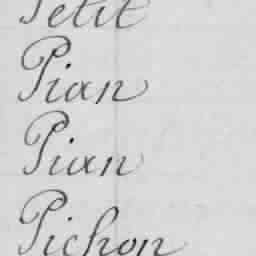 Petit
Pian
Pian
Pichon